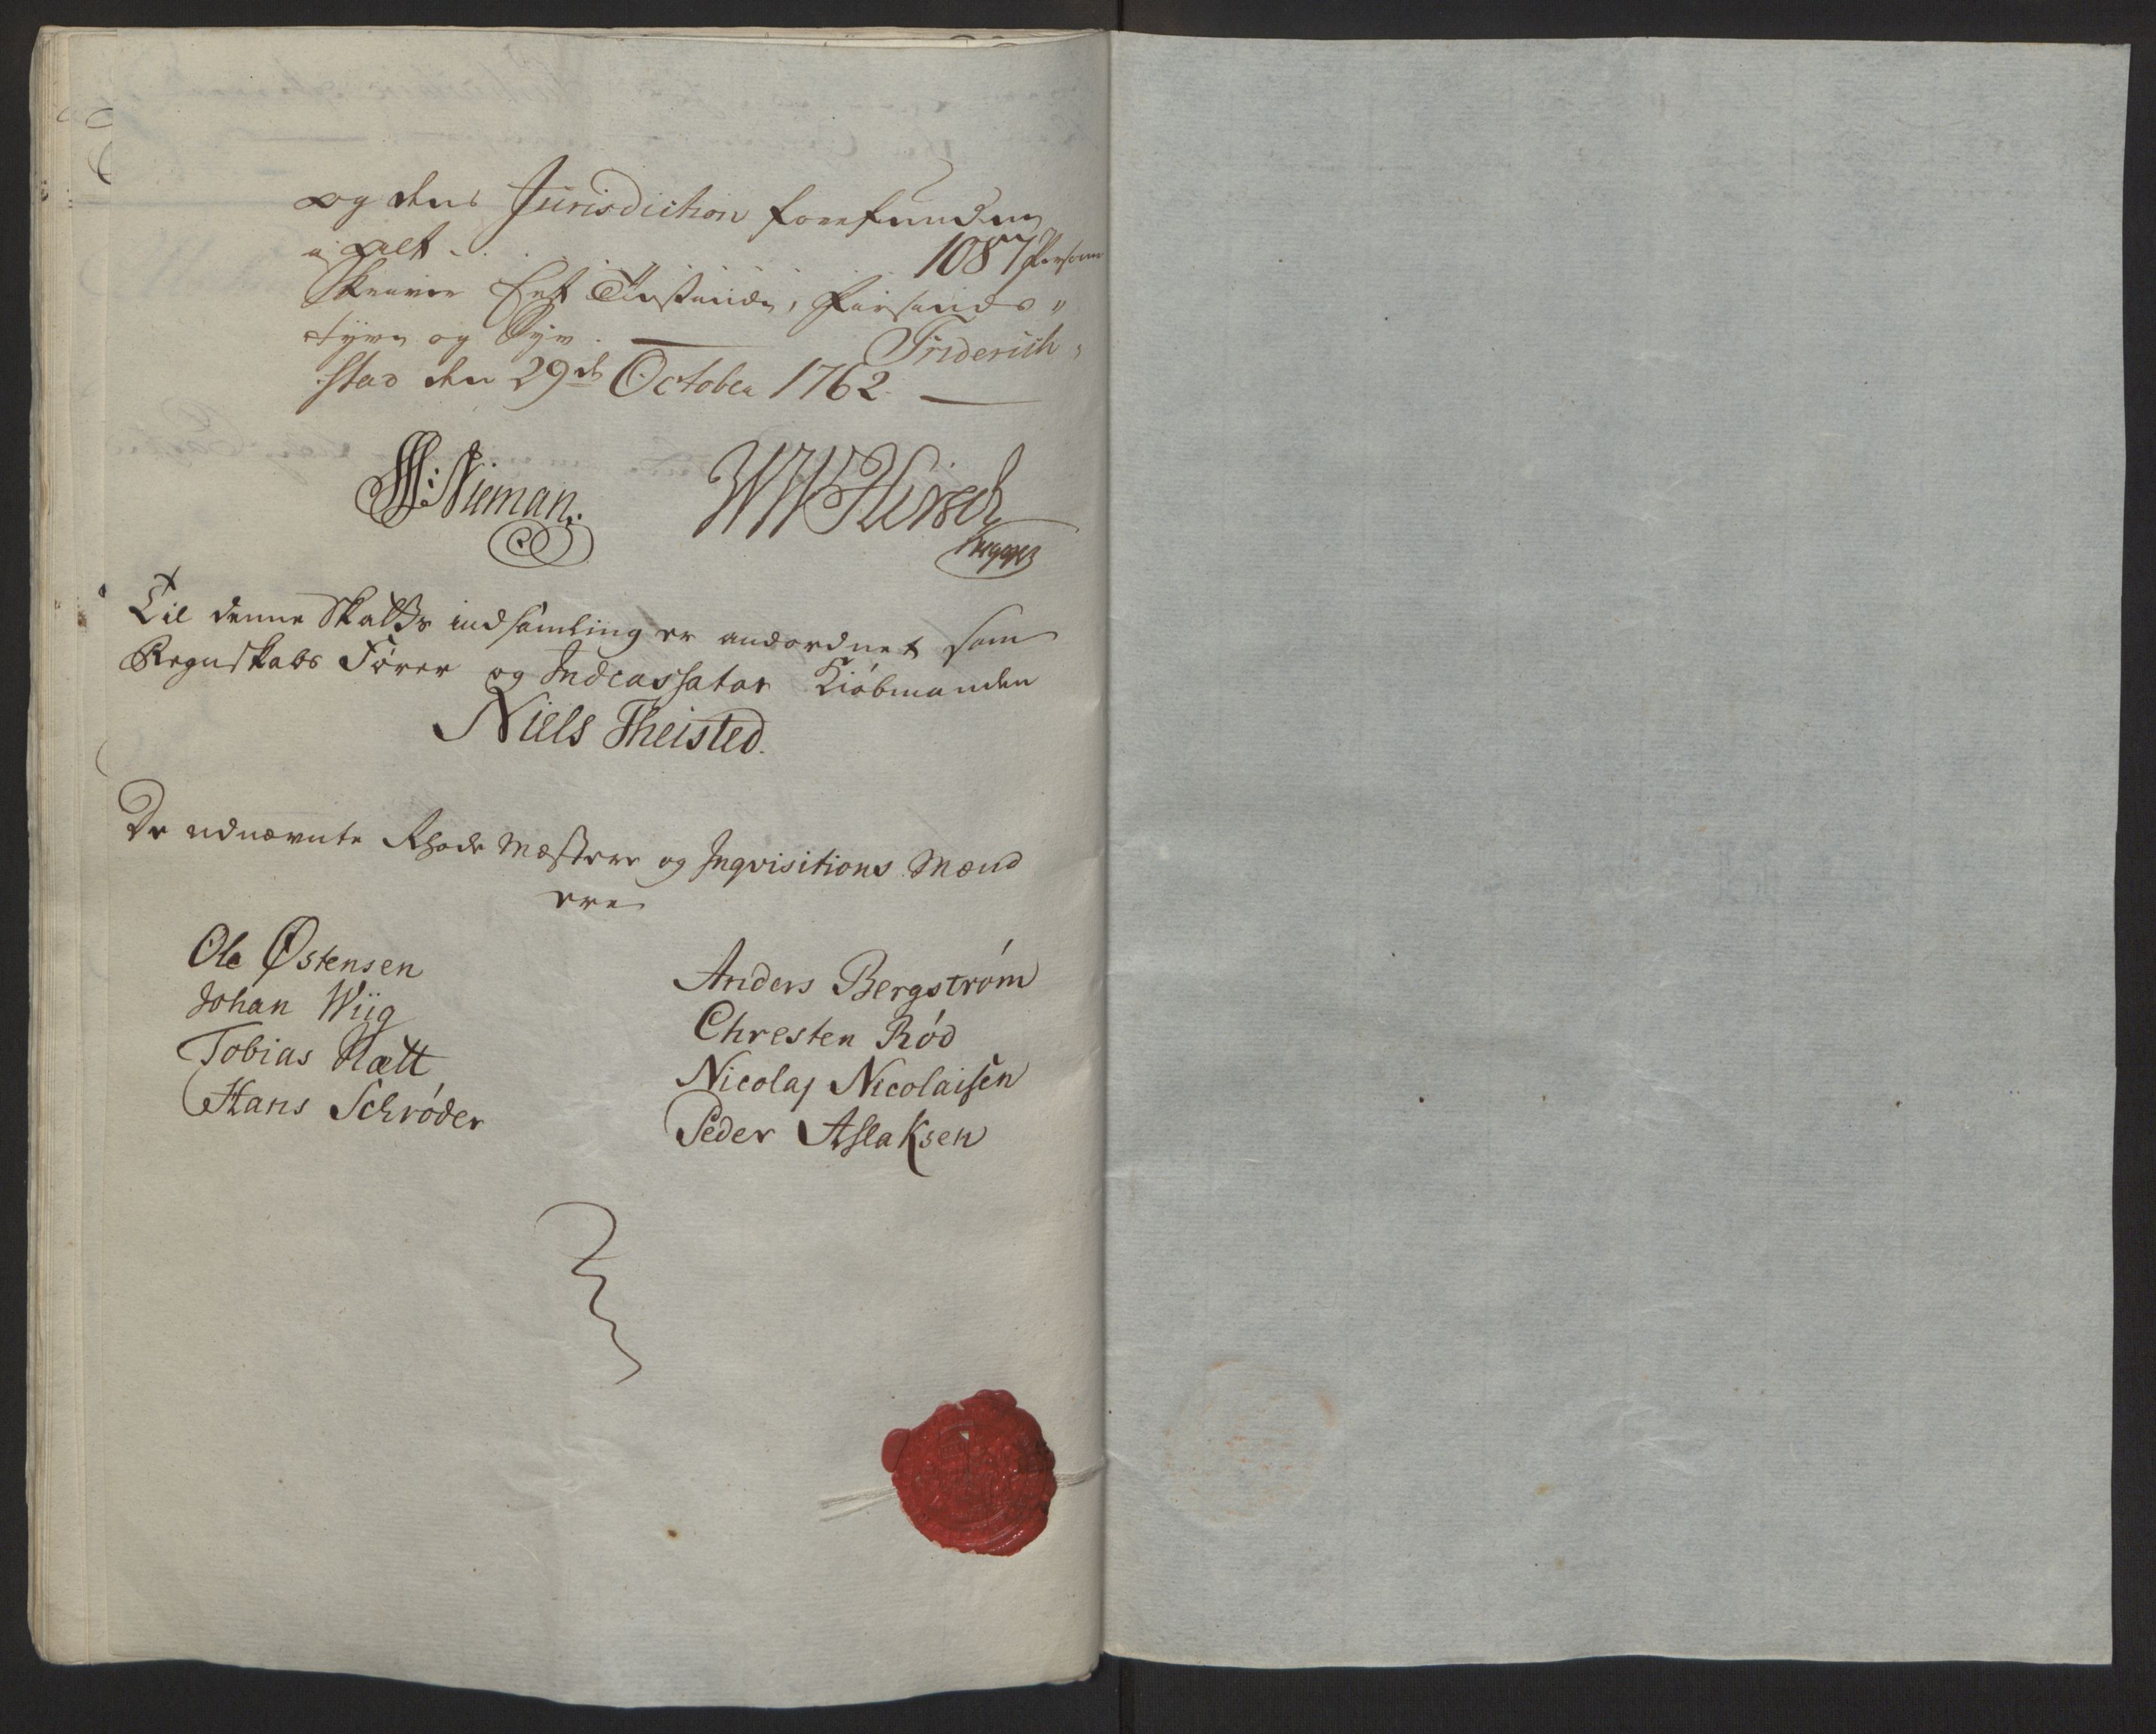 og dens Jurisdiction forefunden
i alt . . . . . . 1087 Persone
Skriver Eet Tusinde, Firsinds-
tyve og Syv. Friderich-
stad den 29de October 1762.
Nieman.
WWHirsch
Til denne Skatts indsamling er anordnet som
Regnskabs Fører og Indcassator Kiøbmanden
Niels Theisted.
De udnævnte Rhode Mestere og Inqvisitions Mænd
ere
Ole Østensen
Johan Wiig
Tobias Hætt
Hans Schrøder
Anders Bergstrøm
Chresten Rød
Nicolaj Nicolaisen
Peder Aslaksen